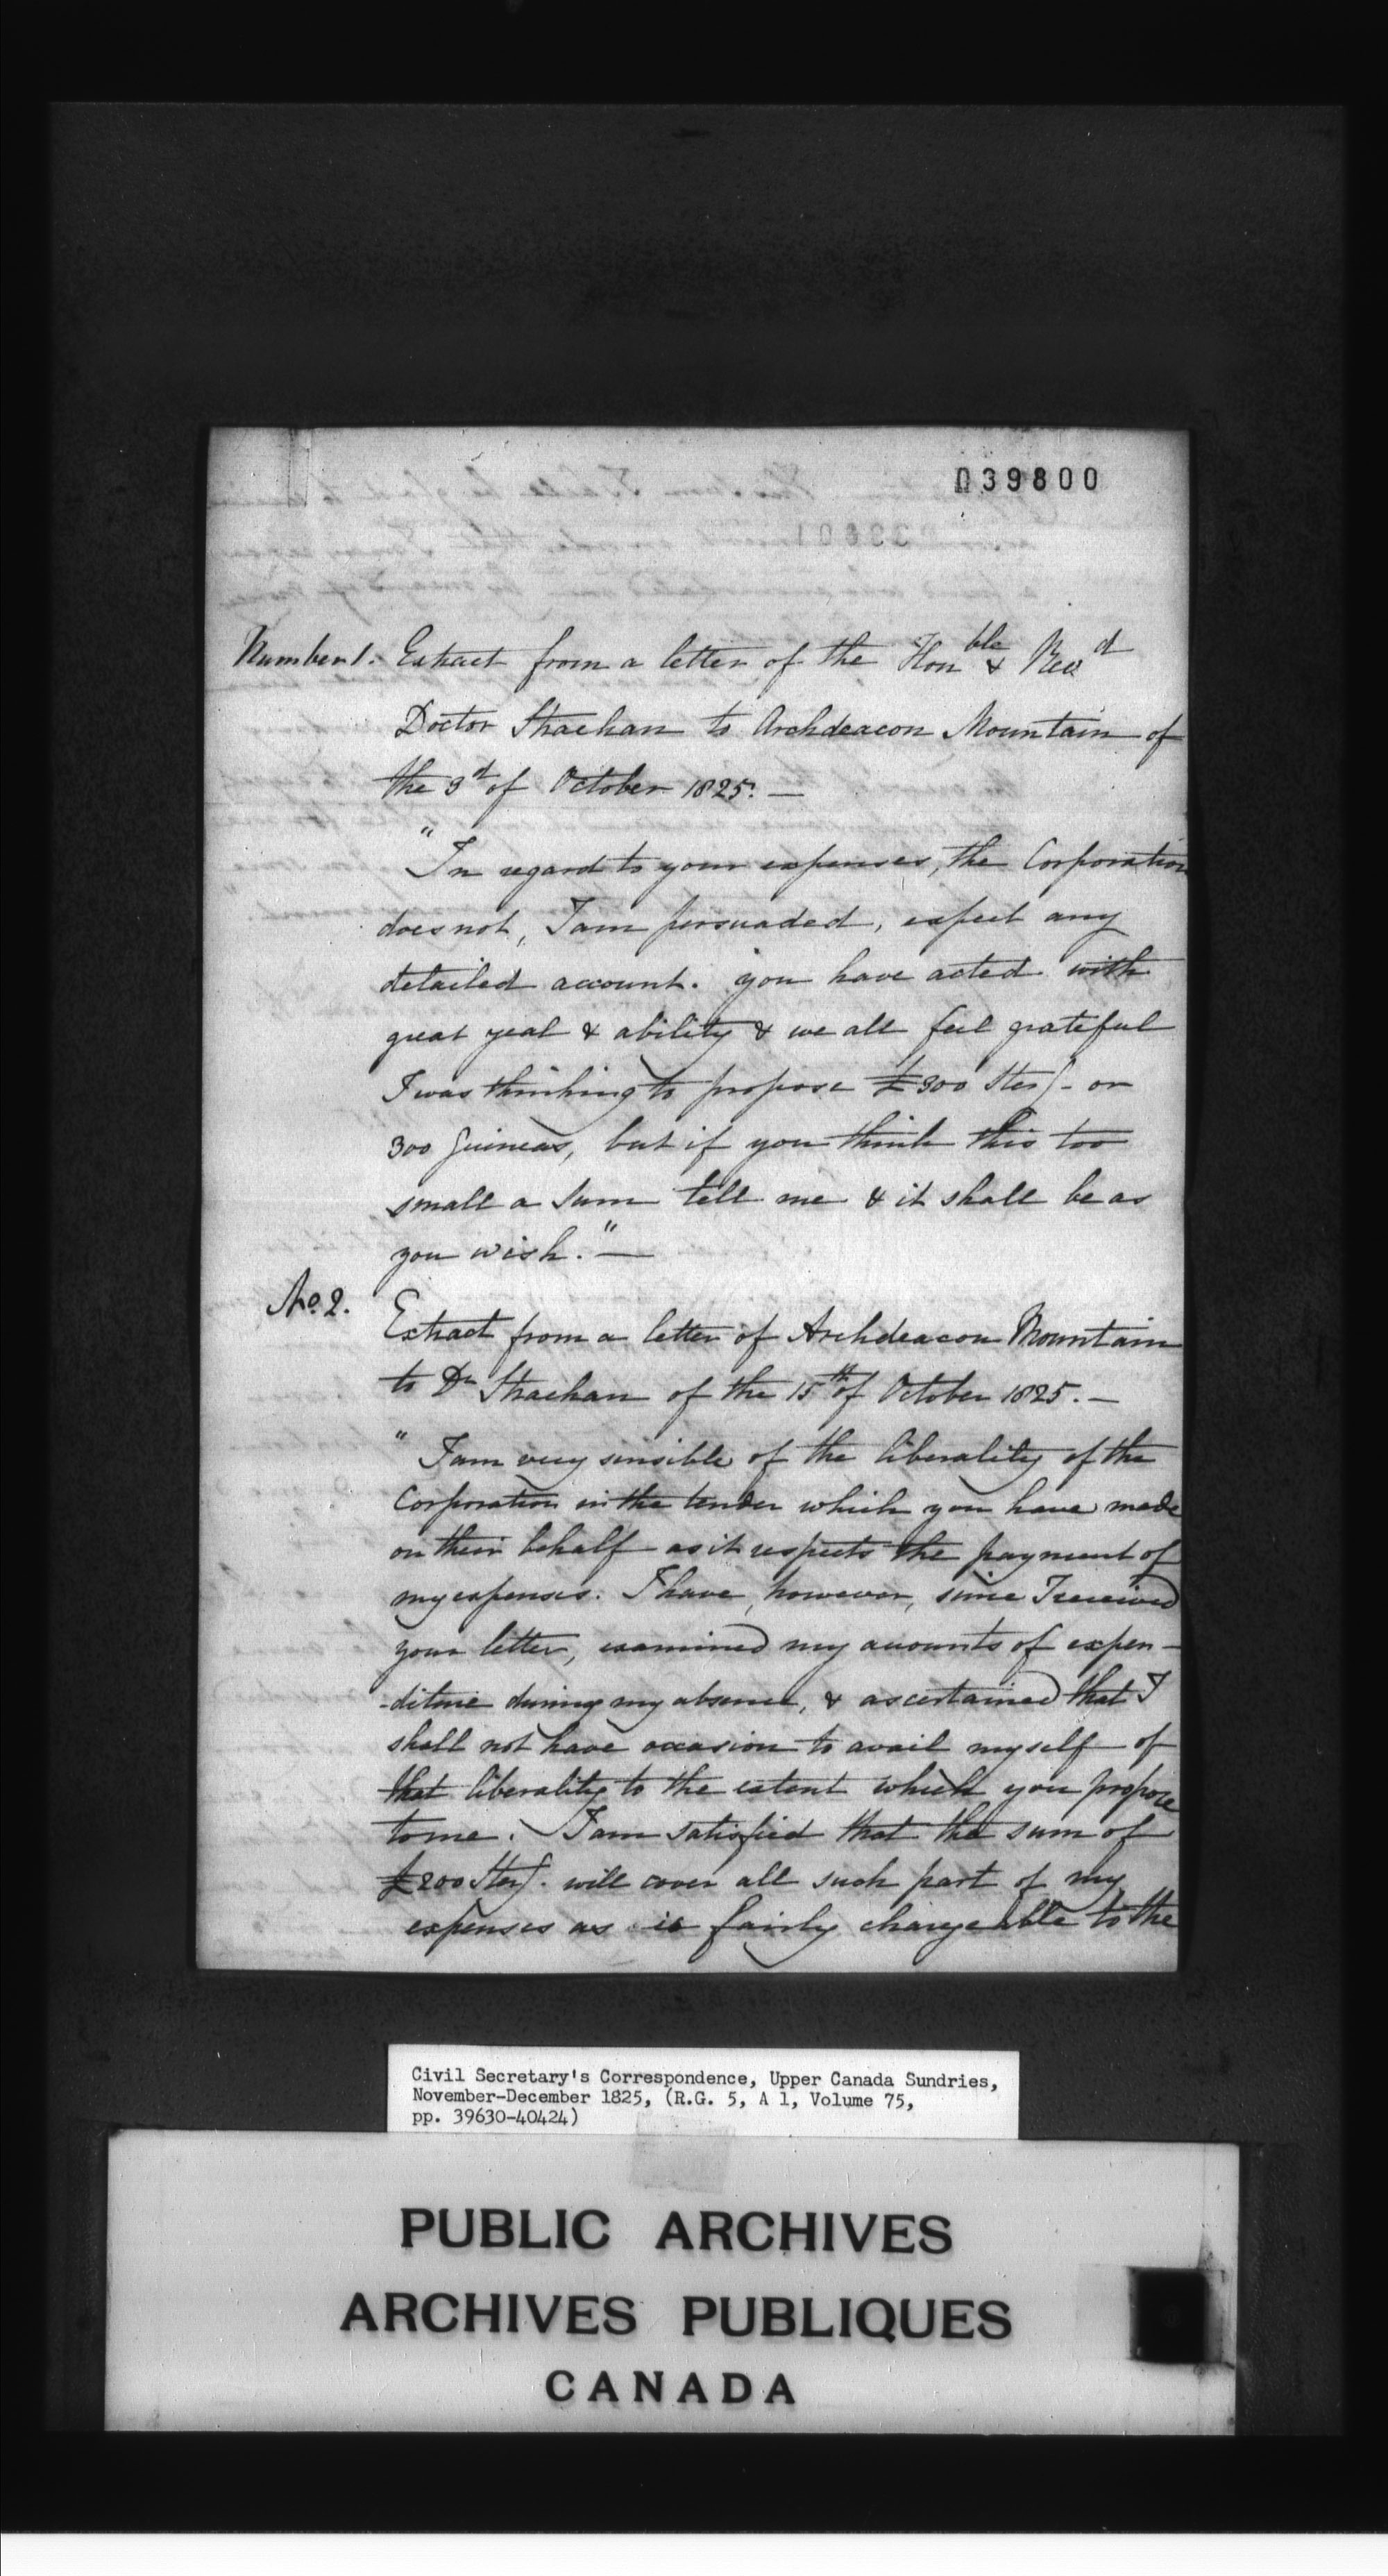 039800
Number 1. Extract from a letter of the Honble & Revd
Doctor Strachan to Archdeacon Mountain of
the 3d of October 1825. —
"In regard to your expenses, the Corporation
does not, I am persuaded, expect any
detailed account. you have acted with
great zeal & ability & we all feel grateful
I was thinking to propose £300 Sterg. or
300 Guineas, but if you think this too
small a sum tell me & it shall be as
you wish." —
No. 2. Extract from a letter of Archdeacon Mountain
to Dr Strachan of the 15th of October 1825. —
"I am very sensible of the liberality of the
Corporation in the tender which you have made
on their behalf as it respects the payment of
my expenses. I have, however, since I received
your letter, examined my accounts of expen-
-diture during my absence, & ascertained that I
shall not have occasion to avail myself of
that liberality to the extent which you propose
to me. I am satisfied that the sum of
£200 Sterg. will cover all such part of my
expenses as is fairly chargeable to the
Civil Secretary's Correspondence, Upper Canada Sundries,
November-December 1825, (R.G. 5, A 1, Volume 75,
pp. 39630-40424)
PUBLIC ARCHIVES
ARCHIVES PUBLIQUES
CANADA